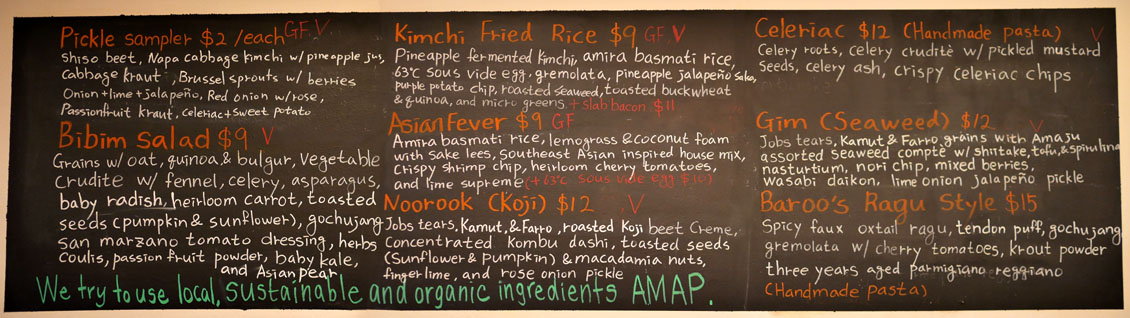 Pickle sampler $2 /each GF V
shiso beet, Napa cabbage kimchi w/ pineapple jus,
cabbage kraut, Brussel sprouts w/ berries
Onion + lime + jalapeño, Red onion w/ rose,
Passionfruit kraut, celeriac + sweet potato
Bibim Salad $9 V
Grains w/ oat, quinoa, & bulgur, vegetable
crudite w/ fennel, celery, asparagus,
baby radish, heirloom carrot, toasted
seeds (pumpkin & sunflower), gochujang
san marzano tomato dressing, herbs
coulis, passion fruit powder, baby kale,
and Asian pear
Kimchi Fried Rice $9 GF V
Pineapple fermented kimchi, amira basmati rice,
63°C sous vide egg, gremolata, pineapple jalapeño salsa,
purple potato chip, roasted seaweed, toasted buckwheat
& quinoa, and micro greens + slab bacon $11
Asian Fever $9 GF
Amira basmati rice, lemongrass & coconut foam
with sake lees, southeast Asian inspired house mix,
crispy shrimp chip, heirloom cherry tomatoes,
and lime supreme (+ 63°C sous vide egg $10)
Noorook (Koji) $12 V
Jobs tears, Kamut, & Farro, roasted Koji beet creme,
Concentrated Kombu dashi, toasted seeds
(Sunflower & Pumpkin) & macadamia nuts,
finger lime, and rose onion pickle
Celeriac $12 (Handmade pasta) V
Celery roots, celery crudité w/ pickled mustard
seeds, celery ash, crispy celeriac chips
Gim (Seaweed) $12 V
Jobs tears, Kamut & Farro grains with Amaju
assorted seaweed compte w/ shiitake, tofu, & spirulina
nasturtium, nori chip, mixed berries,
wasabi daikon, lime onion jalapeño pickle
Baroo's Ragu Style $15
Spicy faux oxtail ragu, tendon puff, gochujang
gremolata w/ cherry tomatoes, krout powder
three years aged parmigiano reggiano
(Handmade pasta)
We try to use local, sustainable and organic ingredients AMAP.